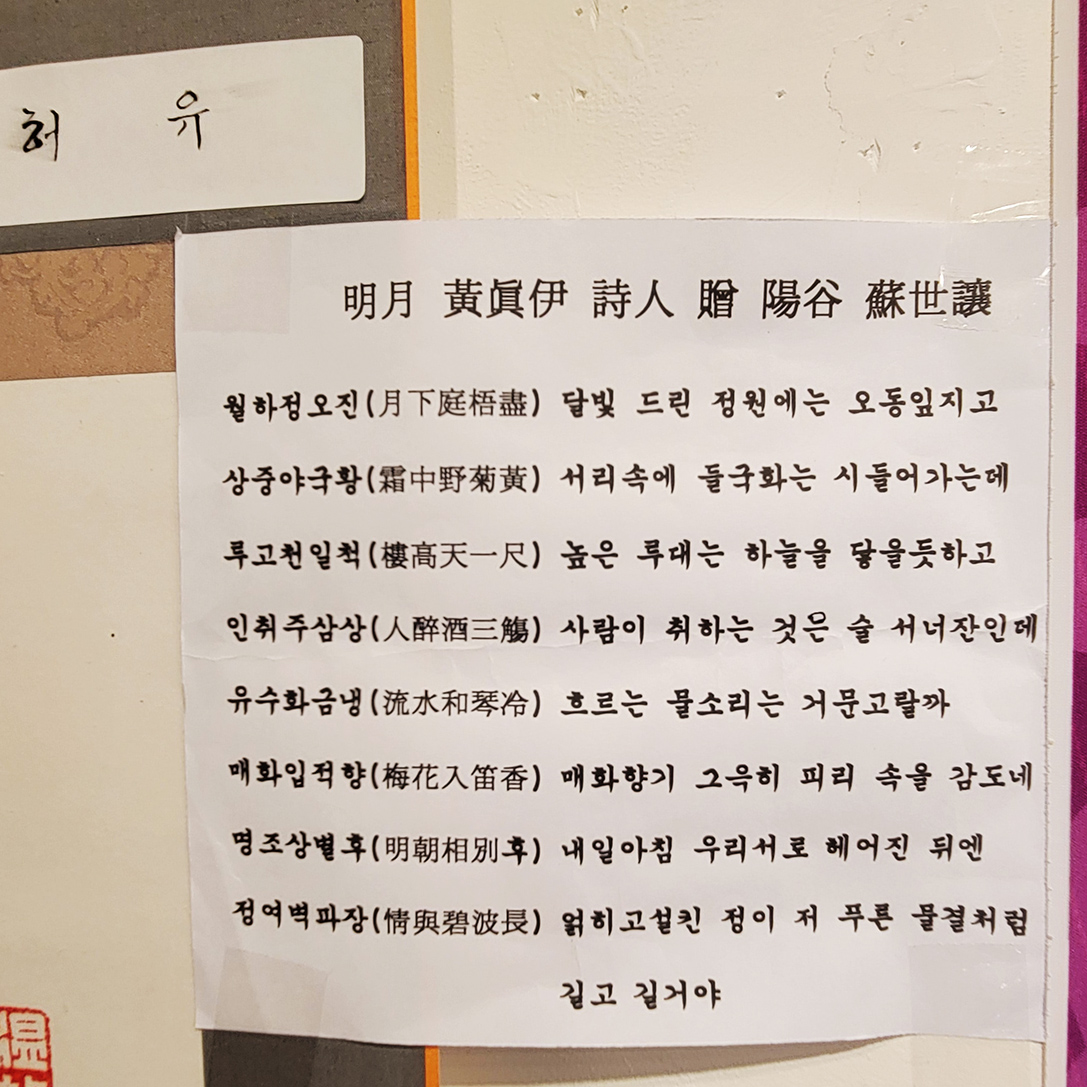 허 유
明月 黃眞伊 詩人 贈 陽谷 蘇世讓
월하정오진(月下庭梧盡) 달빛 드린 정원에는 오동잎지고
상중야국황(霜中野菊黃) 서리속에 들국화는 시들어가는데
루고천일척(樓高天一尺) 높은 루대는 하늘을 닿을듯하고
인취주삼상(人醉酒三觴) 사람이 취하는 것은 술 서너잔인데
유수화금냉(流水和琴冷) 흐르는 물소리는 거문고랄까
매화입적향(梅花入笛香) 매화향기 그윽히 피리 속을 감도네
명조상별후(明朝相別후) 내일아침 우리서로 헤어진 뒤엔
정여벽파장(情與碧波長) 얽히고설킨 정이 저 푸른 물결처럼
길고 길거야